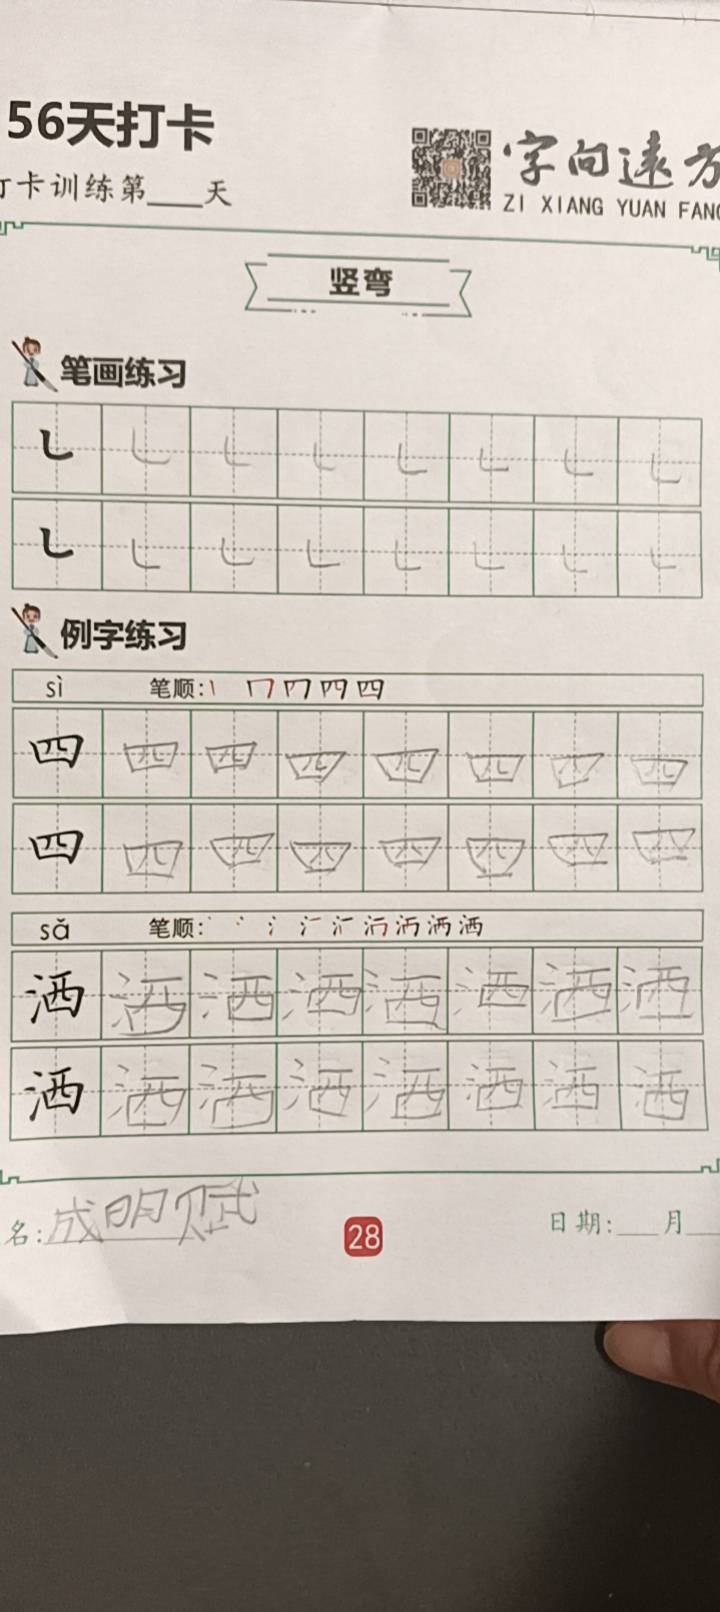 56天打卡
打卡训练第____天
字向远方
ZI XIANG YUAN FANG
竖弯
笔画练习
㇄ ㇄ ㇄ ㇄ ㇄ ㇄ ㇄ ㇄
㇄ ㇄ ㇄ ㇄ ㇄ ㇄ ㇄ ㇄
例字练习
sì 笔顺: 四
四 四 四 四 四 四 四 四
四 四 四 四 四 四 四 四
sǎ 笔顺: 洒
洒 洒 洒 洒 洒 洒 洒 洒
洒 洒 洒 洒 洒 洒 洒 洒
名:成明赋
28
日期:____月____